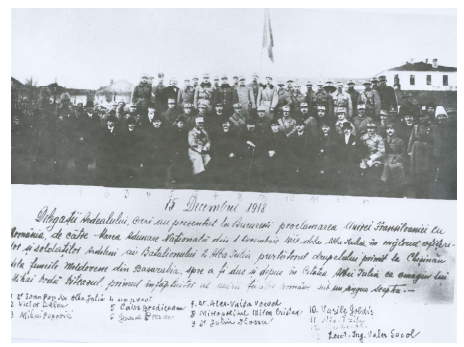 1 2 3 4 5 6 7 8 9 10 11
15 Decembrie 1918
Delegații Ardealului, cari au prezentat la București proclamarea Unirei Transilvaniei cu
România, de către Marea Adunare Națională din 1 Decembrie 1918 dela Alba Iulia în mijlocul ofițeri-
lor și soldaților ardeleni ai Batalionului 2 Alba Iulia purtătorul drapelului primit la Chișinău
dela femeile Moldovene din Basarabia, spre a fi dus și depus în Cetatea Alba Iulia ca omagiu lui
Mihai Vodă Viteazul primul înfăptuitor al unirii țărilor române sub un singur sceptru.
1 Dr Ioan Pop din Alba Iulia
2 Victor Deleu
3 Mihai Popovici
5 Caius Brediceanu
6
7 Dr. Alex. Vaida Voevod
8 Mitropolitul Miron Cristea
9 Dr Iuliu Hossu
10. Vasile Goldiș
11
Locot. Ing. Valer Socol